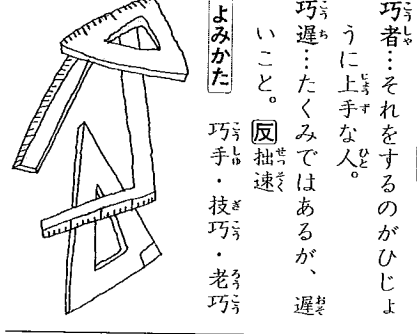 巧者…それをするのがひじょ
うに上手な人。
巧遅…たくみではあるが、遅
いこと。反拙速
よみかた 巧手・技巧・老巧